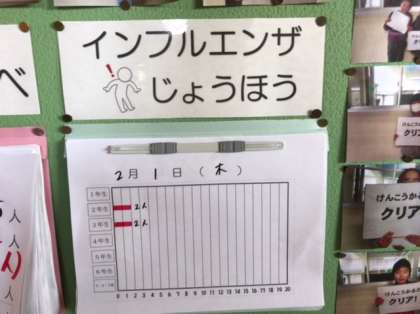 インフルエンザ
じょうほう
2月1日(木)
1年生
2年生 2人
3年生 2人
4年生
5年生
6年生
0 1 2 3 4 5 6 7 8 9 10 11 12 13 14 15 16 17 18 19 20
べ
人
人
人
クリア
けんこうか
クリア!
けんこうかる
クリア!
けんこうか
クリア!